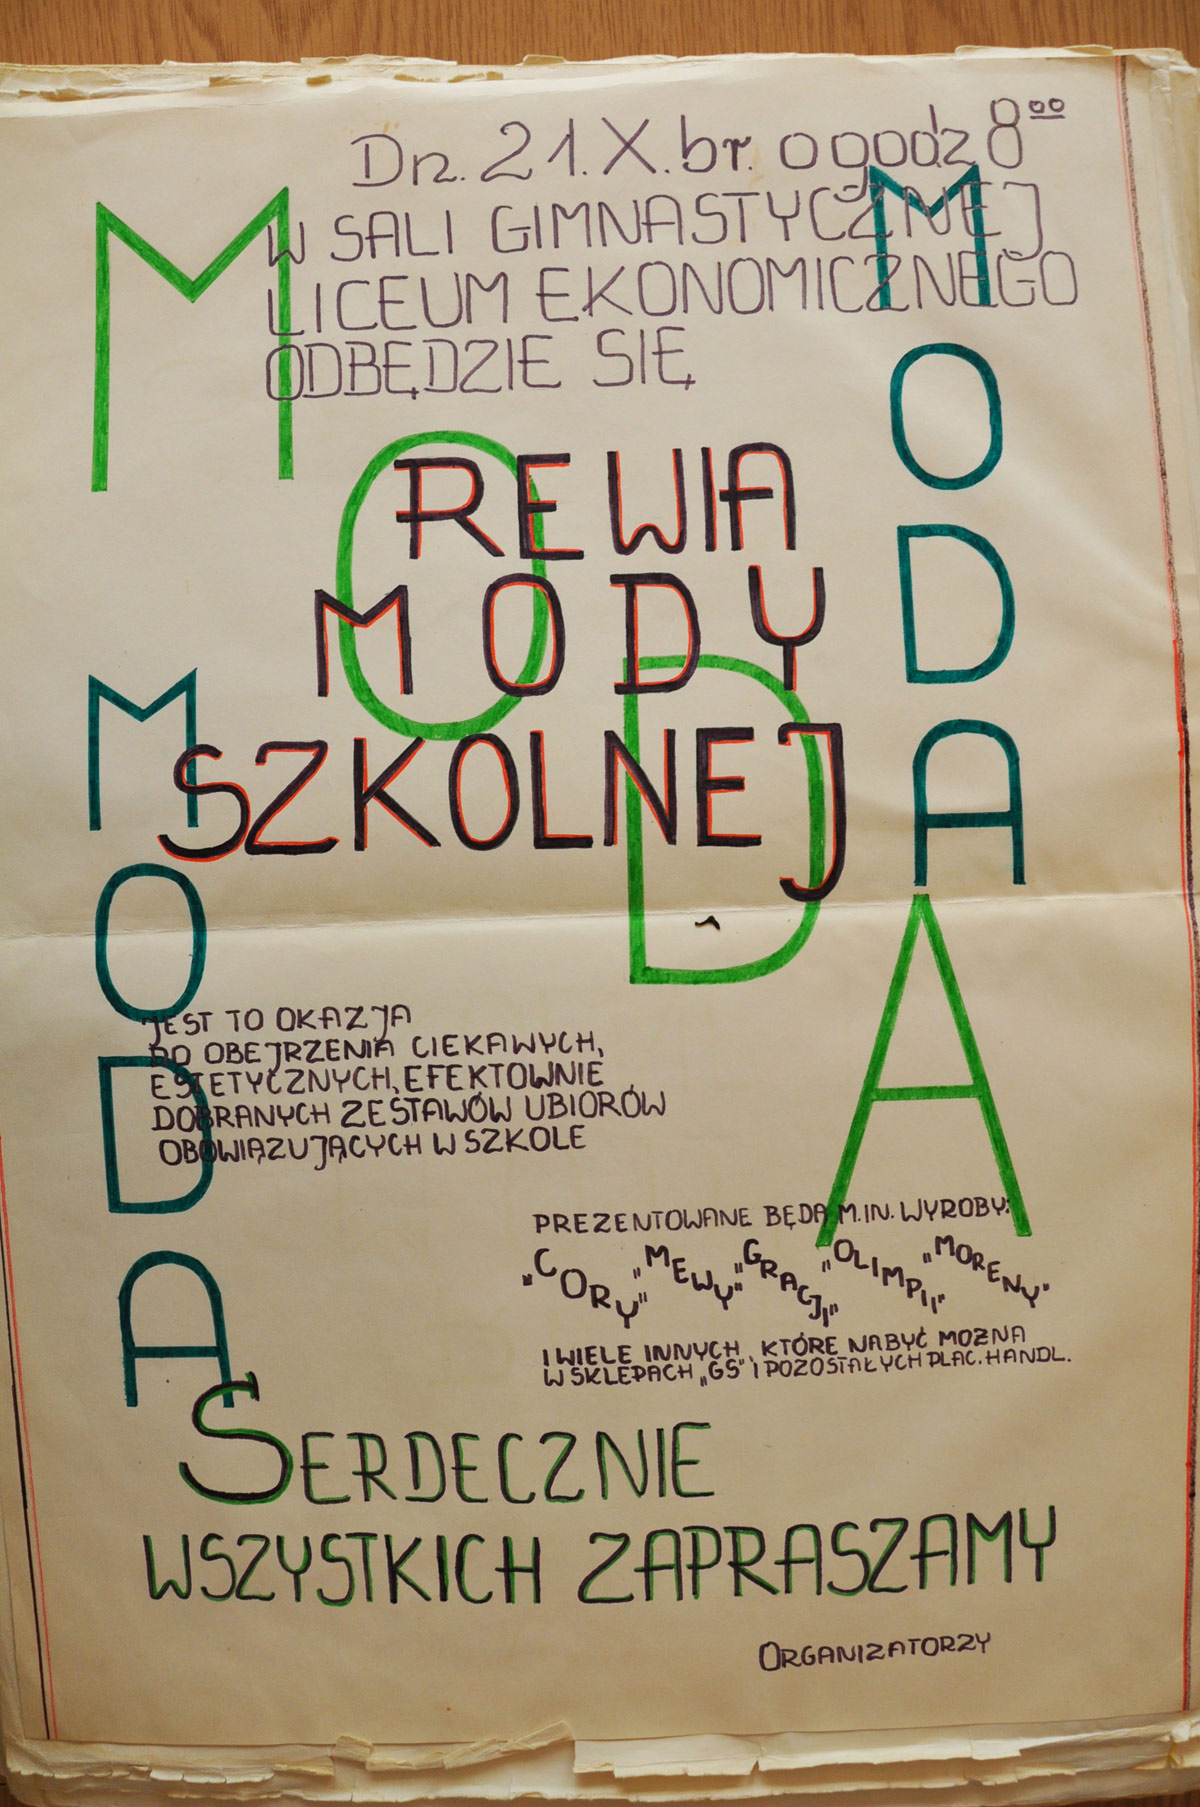 Dn. 21. X. br. o godz 8⁰⁰
W SALI GIMNASTYCZNEJ
LICEUM EKONOMICZNEGO
ODBĘDZIE SIĘ
MODA
MODA
MODA
REWIA
MODY
SZKOLNEJ
JEST TO OKAZJA
DO OBEJRZENIA CIEKAWYCH,
ESTETYCZNYCH, EFEKTOWNIE
DOBRANYCH ZESTAWÓW UBIORÓW
OBOWIĄZUJĄCYCH W SZKOLE
PREZENTOWANE BĘDĄ M.IN. WYROBY:
„CORY" „MEWY" „GRACJI" „OLIMPII" „MORENY"
I WIELE INNYCH, KTÓRE NABYĆ MOŻNA
W SKLEPACH „GS" I POZOSTAŁYCH PLAC. HANDL.
SERDECZNIE
WSZYSTKICH ZAPRASZAMY
ORGANIZATORZY